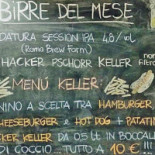 BIRRE DEL MESE
DATURA SESSION IPA 4.8/vol
(Roma Brew Farm)
HACKER PSCHORR KELLER non
Filtra
MENÚ KELLER
NINO A SCELTA TRA HAMBURGER
HEESEBURGER e HOT DOG + PATATIN
KER KELLER DA 0,5 Lt IN BOCCAL
DI COCCIO... TUTTO A 10 € !!!